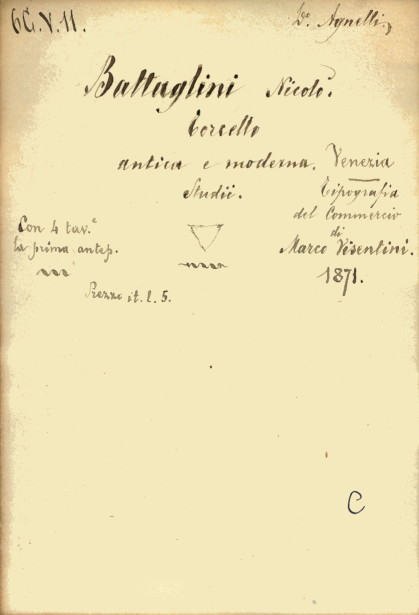 6G.V.11.
Dr. Agnelli
Battaglini Nicolò.
Torcello
antica e moderna.
Studii.
Venezia
Tipografia
del Commercio
di
Marco Visentini.
1871.
Con 4 tav.e
la prima antep.
Prezzo it. l. 5.
C